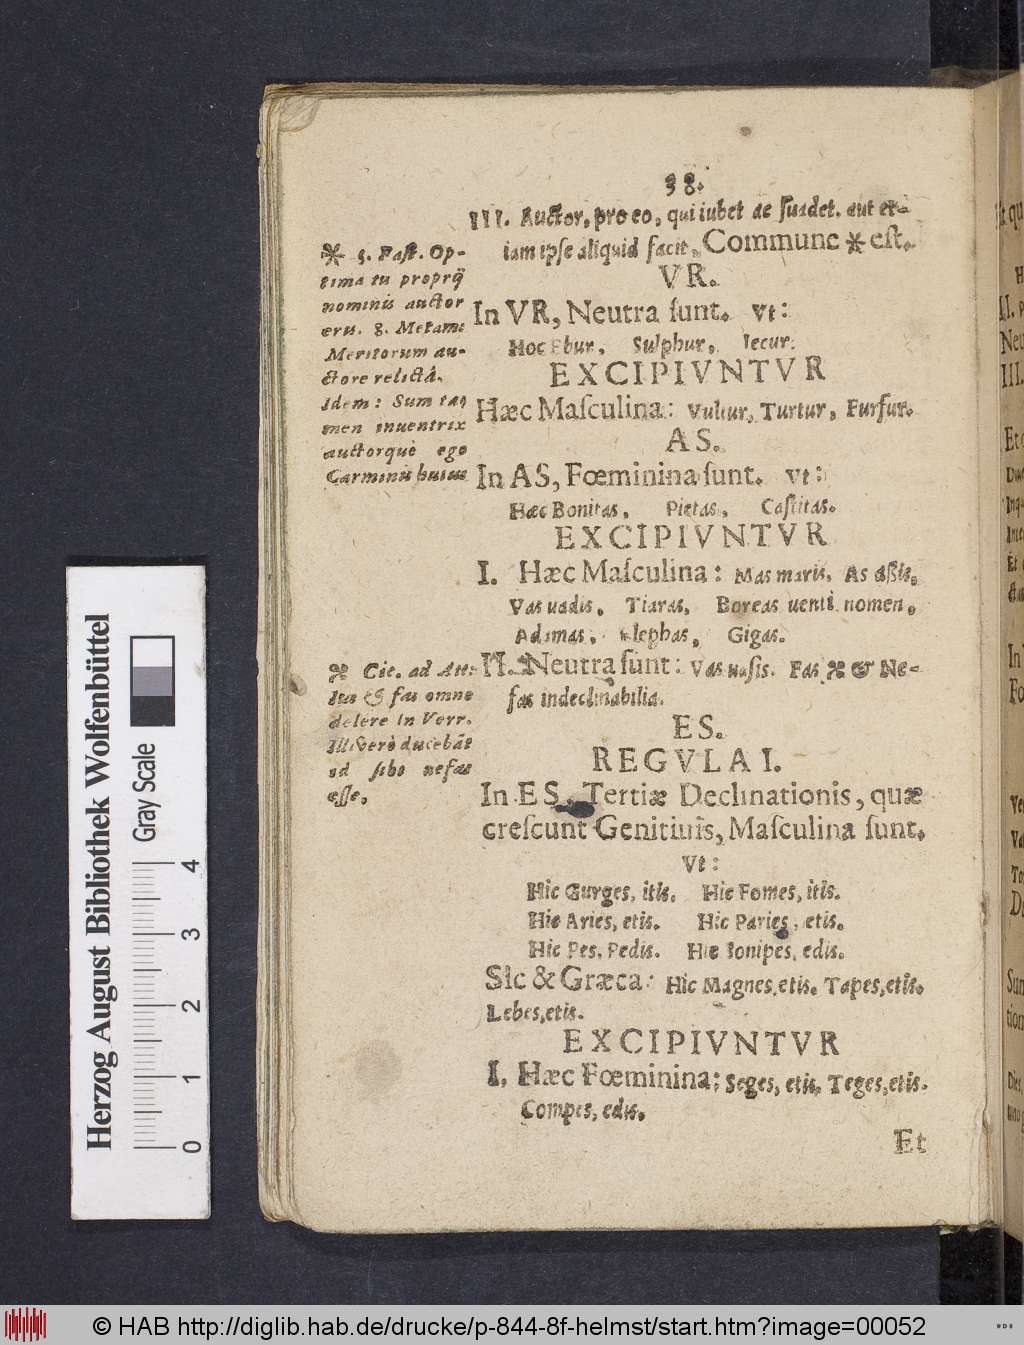 38.
III. Auctor, pro eo, qui iubet ac ſuadet. aut et-
iam ipſe aliquid facit, Commune * eſt.
VR.
In VR, Neutra ſunt. Vt:
Hoc Ebur. Sulphur, Iecur.
EXCIPIVNTVR
Hæc Maſculina: Vultur, Turtur, Furfur.
AS.
In AS, Fœminina ſunt. vt:
Hæc Bonitas. Pietas. Caſtitas.
EXCIPIVNTVR
I. Hæc Maſculina: Mas maris. As aßis.
Vas uadis. Tiaras, Boreas uenti nomen.
Adamas. Elephas, Gigas.
II. Neutra ſunt: Vas uaſis. Fas * & Ne-
fas indeclinabilia.
ES.
REGVLA I.
In ES, Tertiæ Declinationis, quæ
creſcunt Genitiuis, Maſculina ſunt.
Vt:
Hic Gurges, itis. Hic Fomes, itis.
Hic Aries, etis. Hic Paries, etis.
Hic Pes, Pedis. Hic Sonipes, edis.
Sic & Græca: Hic Magnes, etis. Tapes, etis.
Lebes, etis.
EXCIPIVNTVR
I. Hæc Fœminina: Seges, etis, Teges, etis.
Compes, edis.
Et
* 5. Faſt. Op-
tima tu proprij
nominis auctor
eris. 8. Metam:
Meritorum au-
ctore relictâ.
Idem: Sum tan
men inuentrix
auctorquè ego
Carminis huius
* Cic. ad Att:
Ius & fas omne
delere In Verr.
Illi verò ducebāt
id ſibi nefas
eſſe.
Herzog August Bibliothek Wolfenbüttel
Gray Scale
0 1 2 3 4
© HAB http://diglib.hab.de/drucke/p-844-8f-helmst/start.htm?image=00052